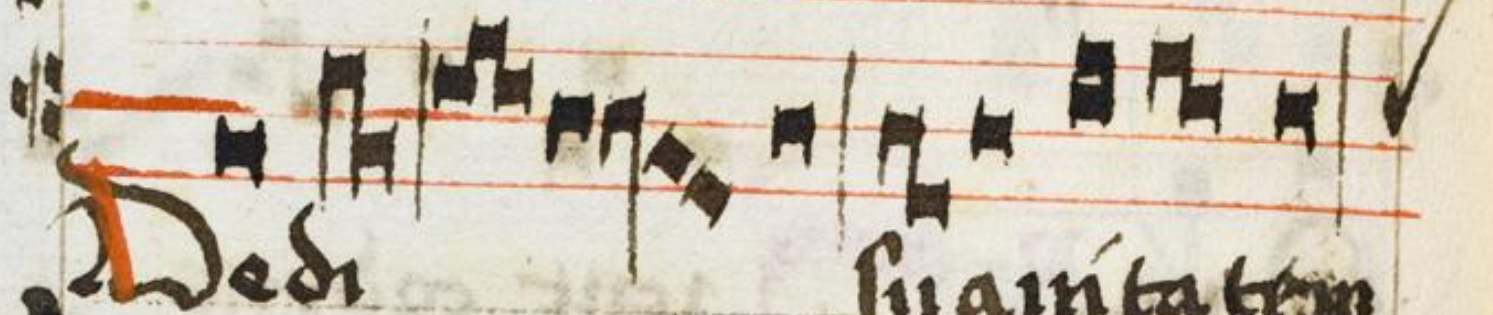 Dedi suauitatem